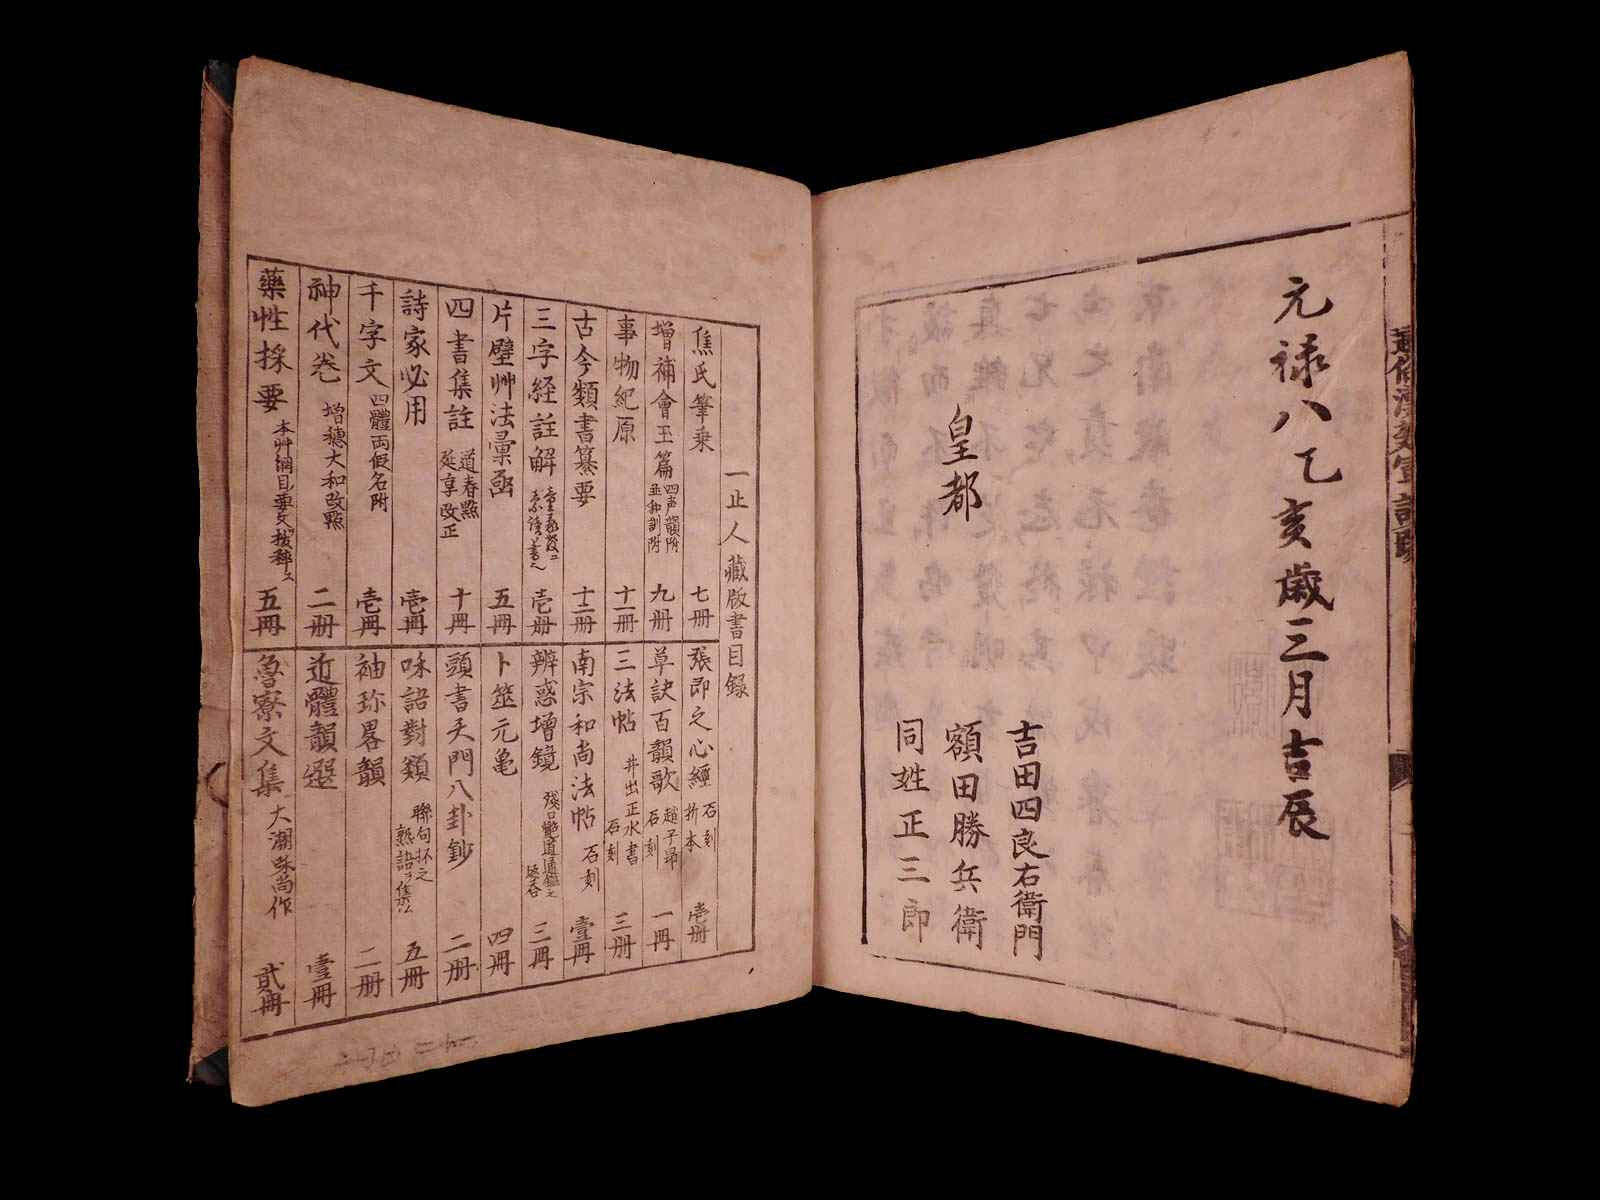 元禄八乙亥歳三月吉辰
皇都
吉田四良右衛門
額田勝兵衛
同姓正三郎
一止人藏版書目録
焦氏筆乗 七冊
増補會玉篇 四声韻附 並和訓附 九册
事物紀原 十一冊
古今類書纂要 十二冊
三字経註解 壱册
片壁艸法彙函 五冊
四書集註 道春點 延享改正 十冊
詩家必用 壱冊
千字文 四體両假名附 壱冊
神代巻 増穂大和改點 二册
藥性採要 五冊
張即之心經 石刻 折本 壱册
草訣百韻歌 趙子昴 石刻 一冊
三法帖 井出正水書 石刻 三册
南宗和尚法帖 石刻 壹冊
辨惑增鏡 三冊
卜筮元亀 四冊
頭書天門八卦鈔 二册
味語對類 五冊
袖珍畧韻 二册
近體韻選 壹冊
魯寮文集 大潮和尚作 貳冊